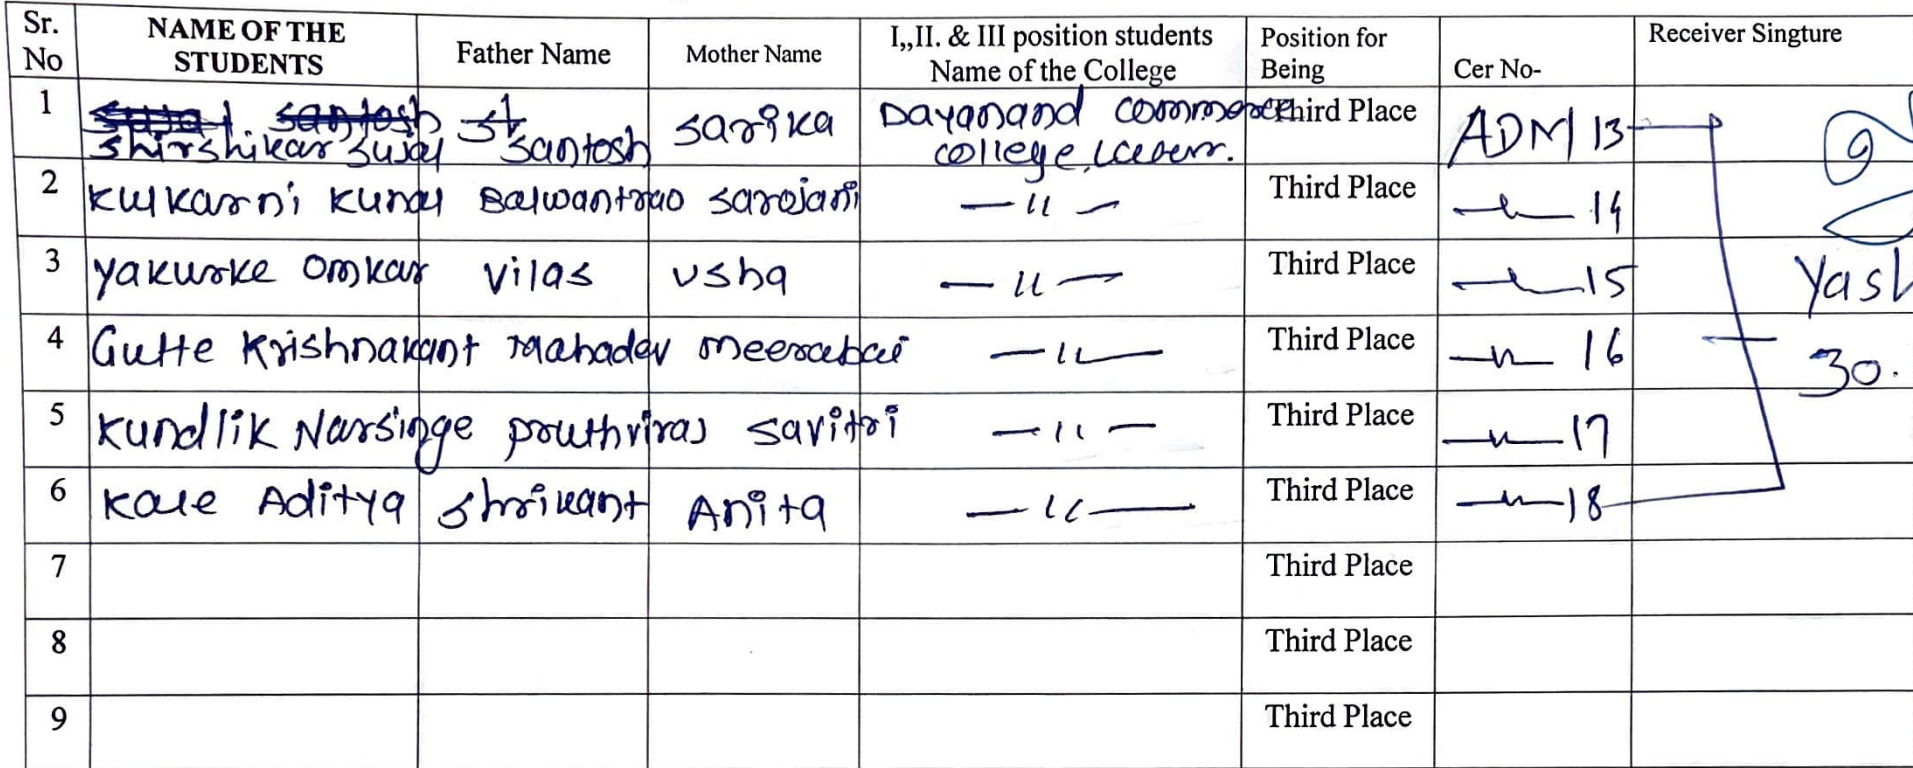 Sr. No NAME OF THE STUDENTS Father Name Mother Name I,,II. & III position students Name of the College Position for Being Cer No- Receiver Singture
1 shirshikar sujal santosh sarika Dayanand commerce college, Third Place ADM 13
2 kulkarni kunal Balwantrao sarojani —11— Third Place —11— 14
3 yakurke omkar vilas usha —11— Third Place —11— 15 Yash
4 Gutte Krishnakant mahadev meerabai —11— Third Place —11— 16 30.
5 kundlik Narsinge pruthviraj savitri —11— Third Place —11— 17
6 kale Aditya shrikant Anita —11— Third Place —11— 18
7 Third Place
8 Third Place
9 Third Place